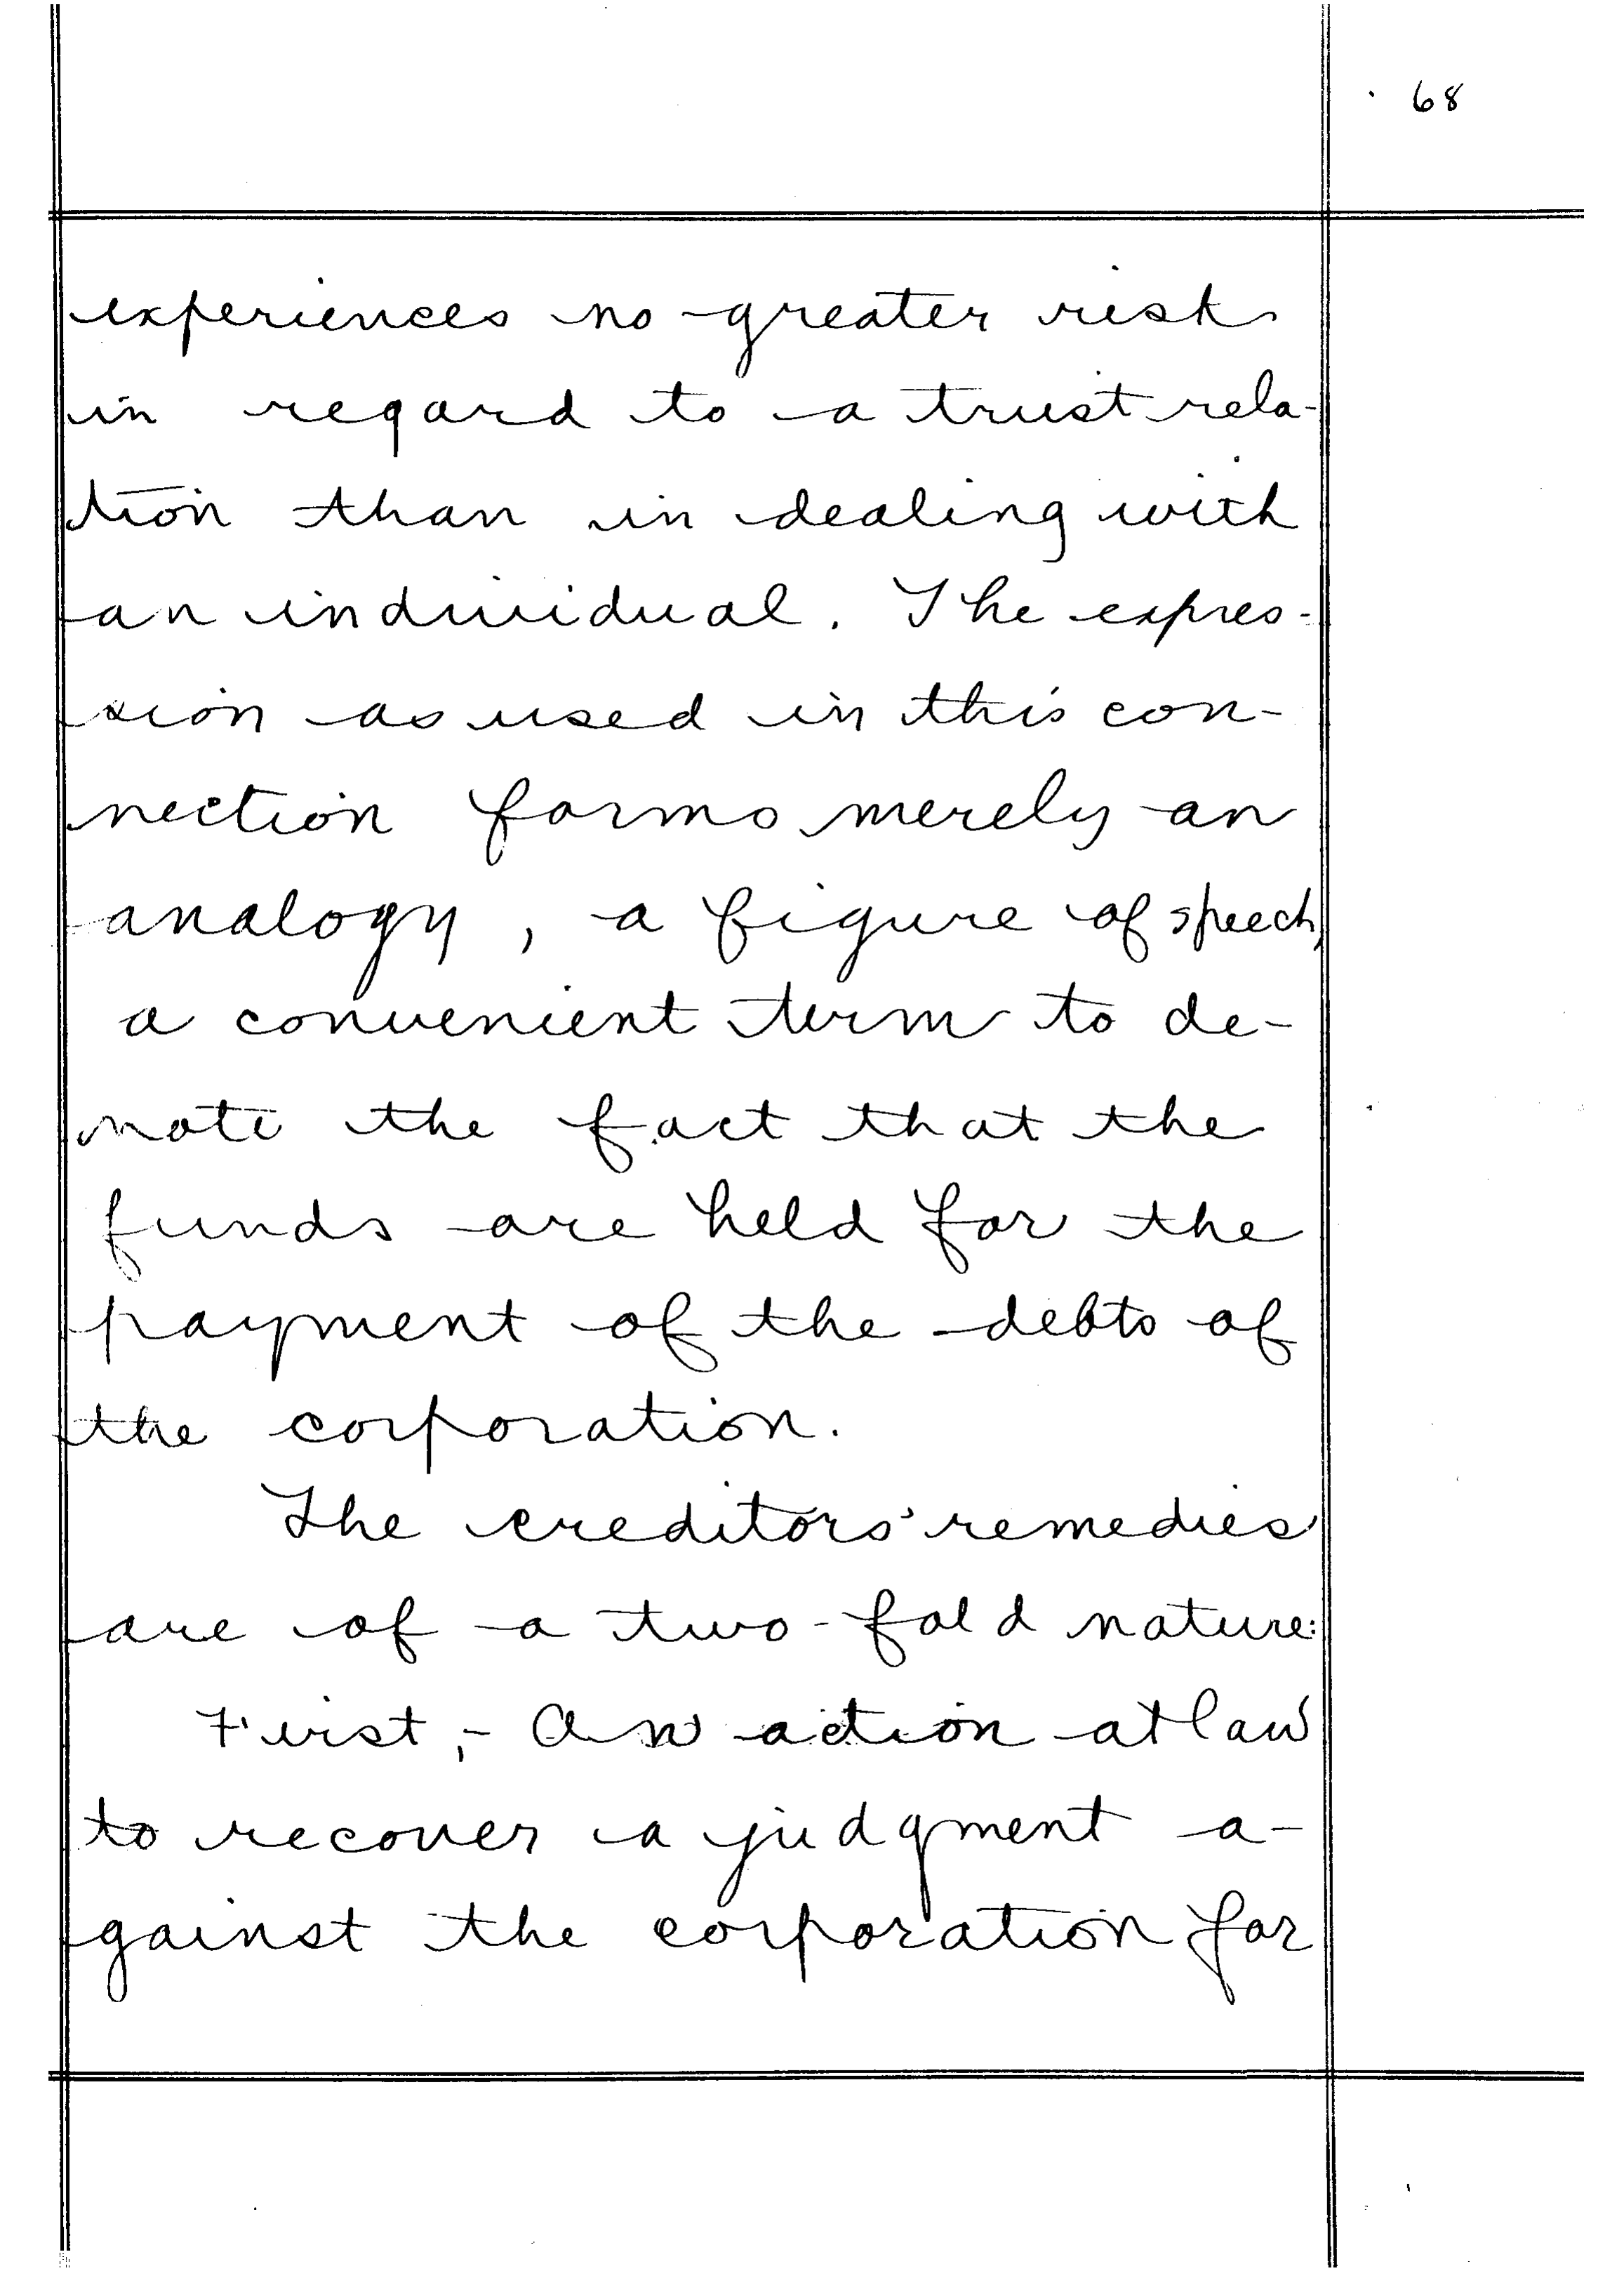 68
experiences no greater risk
in regard to a trust rela-
tion than in dealing with
an individual. The expres-
sion as used in this con-
nection forms merely an
analogy, a figure of speech,
a convenient term to de-
note the fact that the
funds are held for the
payment of the debts of
the corporation.
The creditors' remedies
are of a two-fold nature:
First,- An action at law
to recover a judgment a-
gainst the corporation for